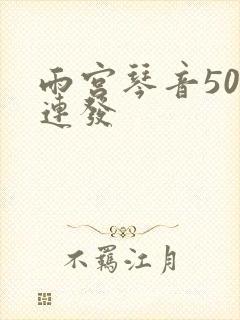 雨宮琴音50
連發
不羈江月